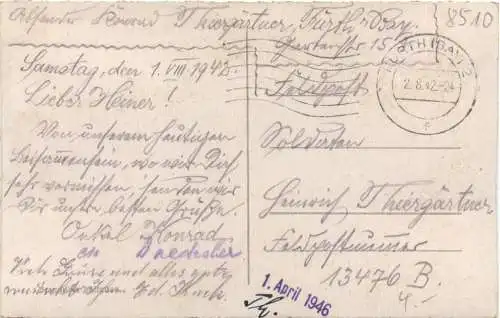 Absender Konrad Thiergärtner, Fürth-Bay.
Gartenstr 15
8510
Samstag, den 1.VIII.1942.
Lieber Heiner!
Von unserem heutigen
Beisammensein, wo wir Dich
sehr vermissen, senden wir
Dir unsere besten Grüße.
Onkel Konrad
viele Grüße und alles gute
TH (BAY) 2
2.8.42-24
Feldpost
Soldaten
Heinrich Thiergärtner
Feldpostnummer
13476 B.
4.-
1. April 1946